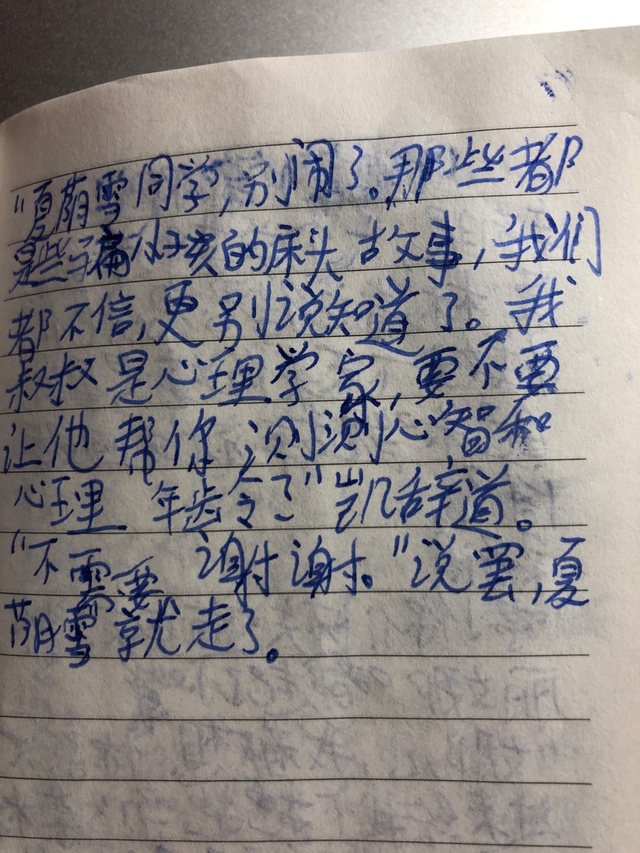 "夏萌雪同学,别闹了。那些都
是些骗小孩的床头故事,我们
都不信,更别说知道了。我
叔叔是心理学家,要不要
让他帮你测测心智和
心理年龄?"凯辞道。
"不需要谢谢。"说罢,夏
萌雪就走了。